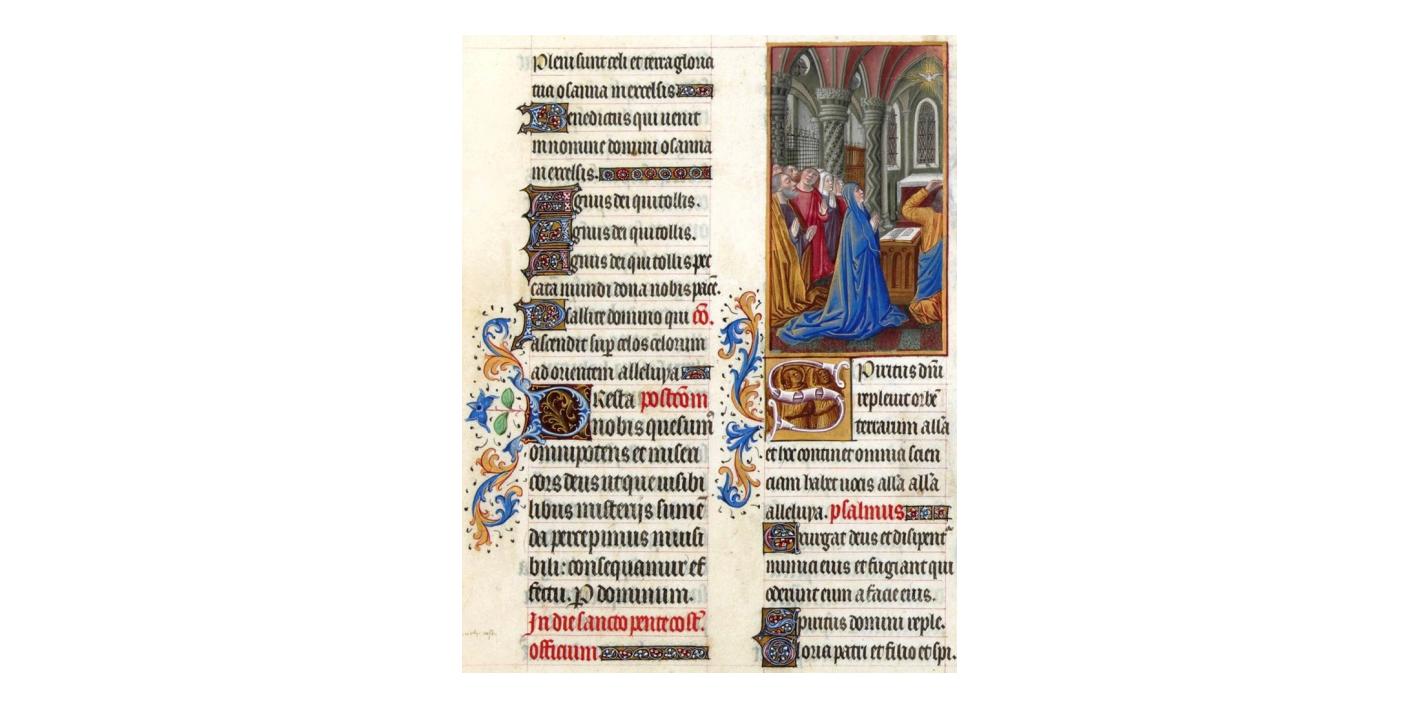 Pleni sunt celi et terra gloria
tua osanna in excelsis
Benedictus qui uenit
in nomine domini osanna
in excelsis.
Agnus dei qui tollis.
Agnus dei qui tollis.
Agnus dei qui tollis pec
cata mundi dona nobis pacē.
Psallite domino qui cō.
ascendit sup celos celorum
ad orientem alleluya
Presta postcōm
nobis quesum̄
omnipotens et miseri
cors deus ut que uisibi
libus misterijs sumē
da percepimus inuisi
bili: consequamur ef
fectu. P dominum.
In die sancto pentecost̄.
officium
Spiritus dn̄i
repleuit orbē
terrarum allā
et hoc continet omnia scien
ciam habet uocis allā allā
alleluya. psalmus
Exurgat deus et disipent᷑
inimici eius et fugiant qui
oderunt eum a facie eius.
Spiritus domini reple.
Gloria patri et filio et spi.